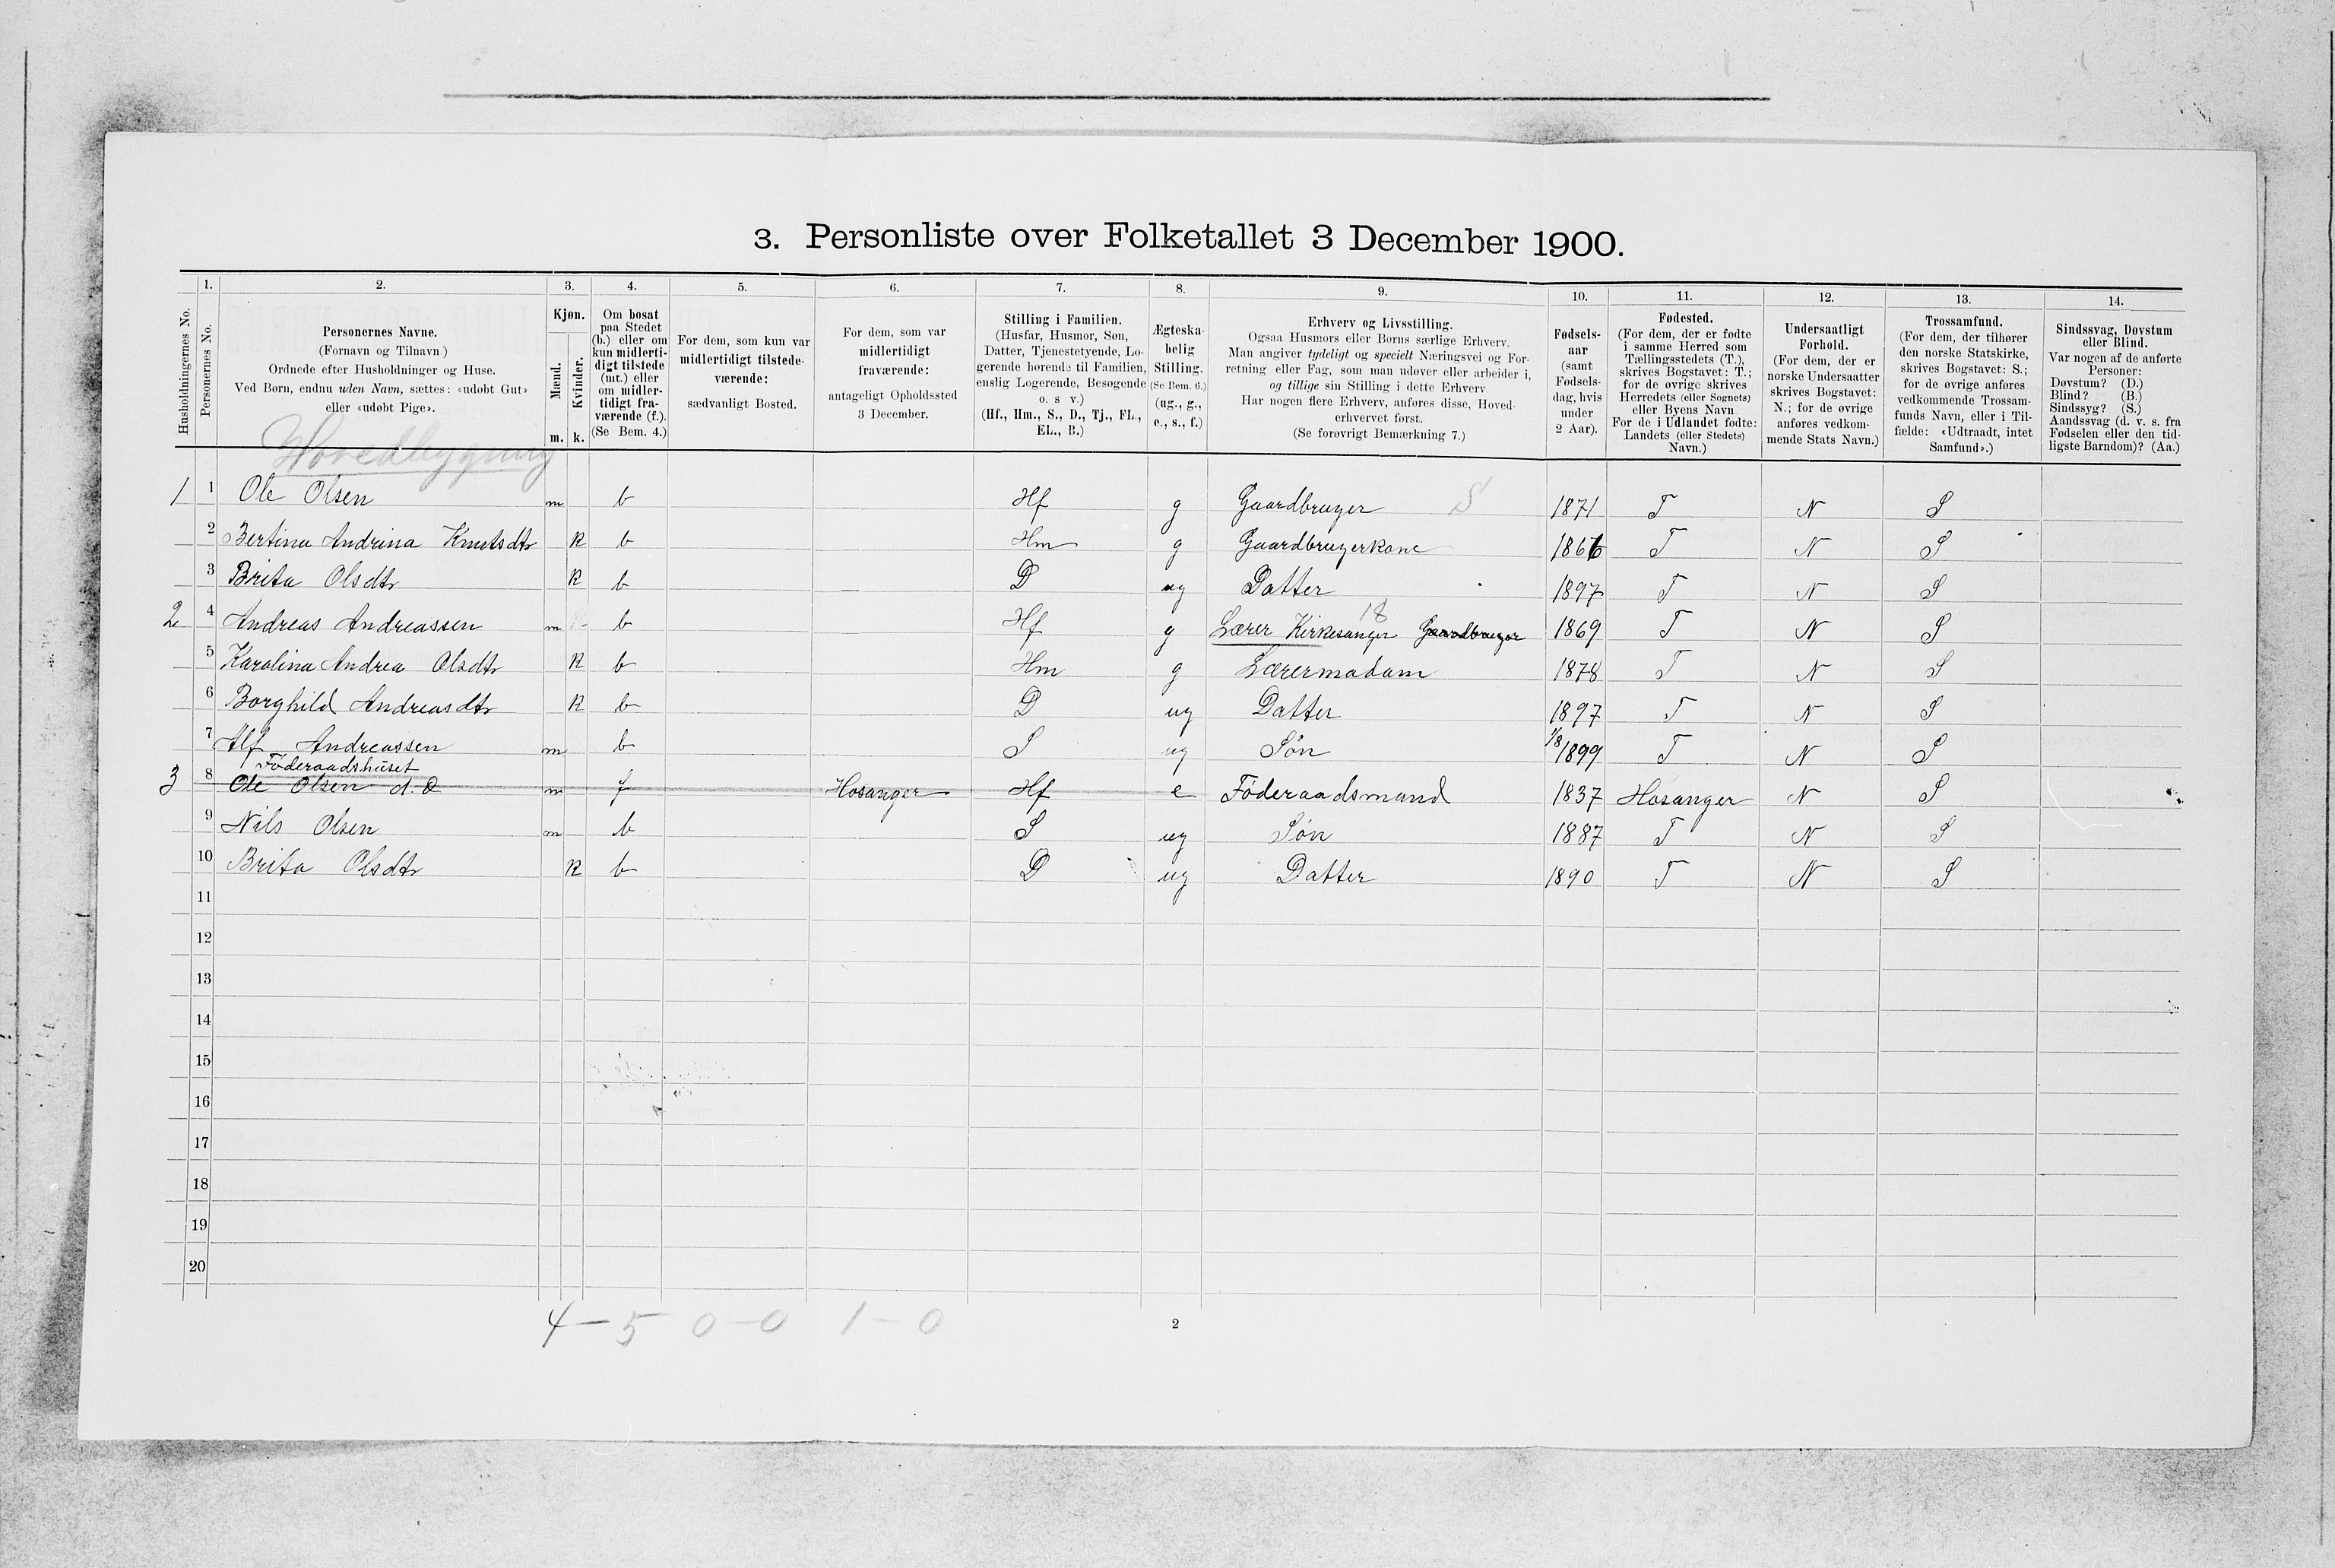 3. Personliste over Folketallet 3 December 1900.
1. 2. 3. 4. 5. 6. 7. 8. 9. 10. 11. 12. 13. 14.
Husholdningernes No.
Personernes No.
Personernes Navne.
(Fornavn og Tilnavn)
Ordnede efter Husholdninger og Huse.
Ved Børn, endnu uden Navn, sættes: «udøbt Gut»
eller «udøbt Pige».
Kjøn.
Mænd.
Kvinder.
m. k.
Om bosat
paa Stedet
(b.) eller om
kun midlerti-
digt tilstede
(mt.) eller
om midler-
tidigt fra-
værende (f.).
(Se Bem. 4.)
For dem, som kun var
midlertidigt tilstede-
værende:
sædvanligt Bosted.
For dem, som var
midlertidigt
fraværende:
antageligt Opholdssted
3 December.
Stilling i Familien.
(Husfar, Husmor, Søn,
Datter, Tjenestetyende, Lo-
gerende hørende til Familien,
enslig Logerende, Besøgende
o. s v.)
(Hf., Hm., S., D., Tj., FL.,
EL., B.)
Ægteska-
belig
Stilling.
(Se Bem. 6.)
(ug., g.,
e., s., f.)
Erhverv og Livsstilling.
Ogsaa Husmors eller Børns særlige Erhverv.
Man angiver tydeligt og specielt Næringsvei og For-
retning eller Fag, som man udøver eller arbeider i,
og tillige sin Stilling i dette Erhverv.
Har nogen flere Erhverv, anføres disse, Hoved-
erhvervet først.
(Se forøvrigt Bemærkning 7.)
Fødsels-
aar
(samt
Fødsels-
dag, hvis
under
2 Aar).
Fødested.
(For dem, der er fødte
i samme Herred som
Tællingsstedets (T.),
skrives Bogstavet: T.;
for de øvrige skrives
Herredets (eller Sognets)
eller Byens Navn.
For de i Udlandet fødte:
Landets (eller Stedets)
Navn.)
Undersaatligt
Forhold.
(For dem, der er
norske Undersaatter
skrives Bogstavet:
N.; for de øvrige
anføres vedkom-
mende Stats Navn.)
Trossamfund.
(For dem, der tilhører
den norske Statskirke,
skrives Bogstavet: S.;
for de øvrige anføres
vedkommende Trossam-
funds Navn, eller i Til-
fælde: «Udtraadt, intet
Samfund».)
Sindssvag, Døvstum
eller Blind.
Var nogen af de anførte
Personer:
Døvstum? (D.)
Blind? (B.)
Sindssyg? (S.)
Aandssvag (d. v. s. fra
Fødselen eller den tid-
ligste Barndom)? (Aa.)
Hovedbygning
1 1 Ole Olsen m b Hf g Gaardbruger S 1871 T N S
2 Bertina Andrina Knutsdtr k b Hm g Gaardbrugerkone 1866 T N S
3 Brita Olsdtr k b D ug Datter 1897 T N S
18
2 4 Andreas Andreassen m b Hf g Lærer Kirkesanger Gaardbruger 1869 T N S
5 Karolina Andrea Olsdtr k b Hm g Lærermadam 1878 T N S
6 Borghild Andreasdtr k b D ug Datter 1897 T N S
7 Alf Andreassen m b S ug Søn 1/8 1899 T N S
Föderaadshuset
3 8 Ole Olsen d. Æ m f Hosanger Hf e Föderaadsmand 1837 Hosanger N S
9 Nils Olsen m b S ug Søn 1887 T N S
10 Brita Olsdtr k b D ug Datter 1890 T N S
11
12
13
14
15
16
17
18
19
20
4-5 0-0 1-0
2